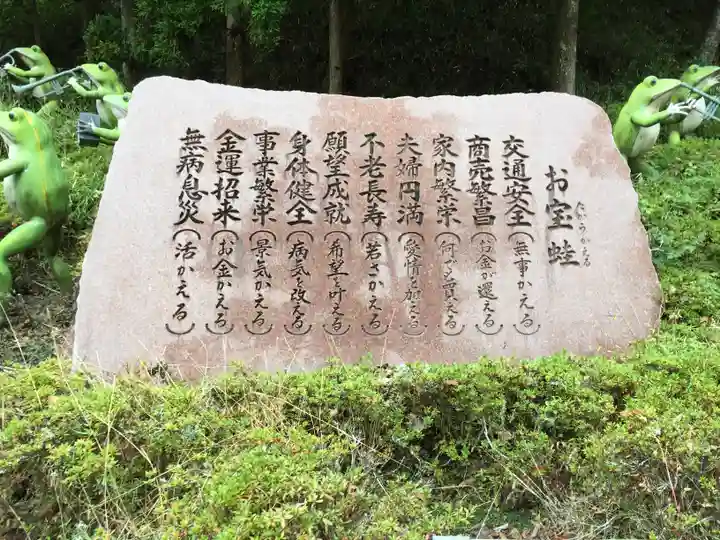 お宝蛙
たからかえる
交通安全(無事かえる)
商売繁昌(お金が還える)
家内繁栄(何でも買える)
夫婦円満(愛情を加える)
不老長寿(若さかえる)
願望成就(希望を叶える)
身体健全(病気を改える)
事業繁栄(景気かえる)
金運招来(お金かえる)
無病息災(活かえる)